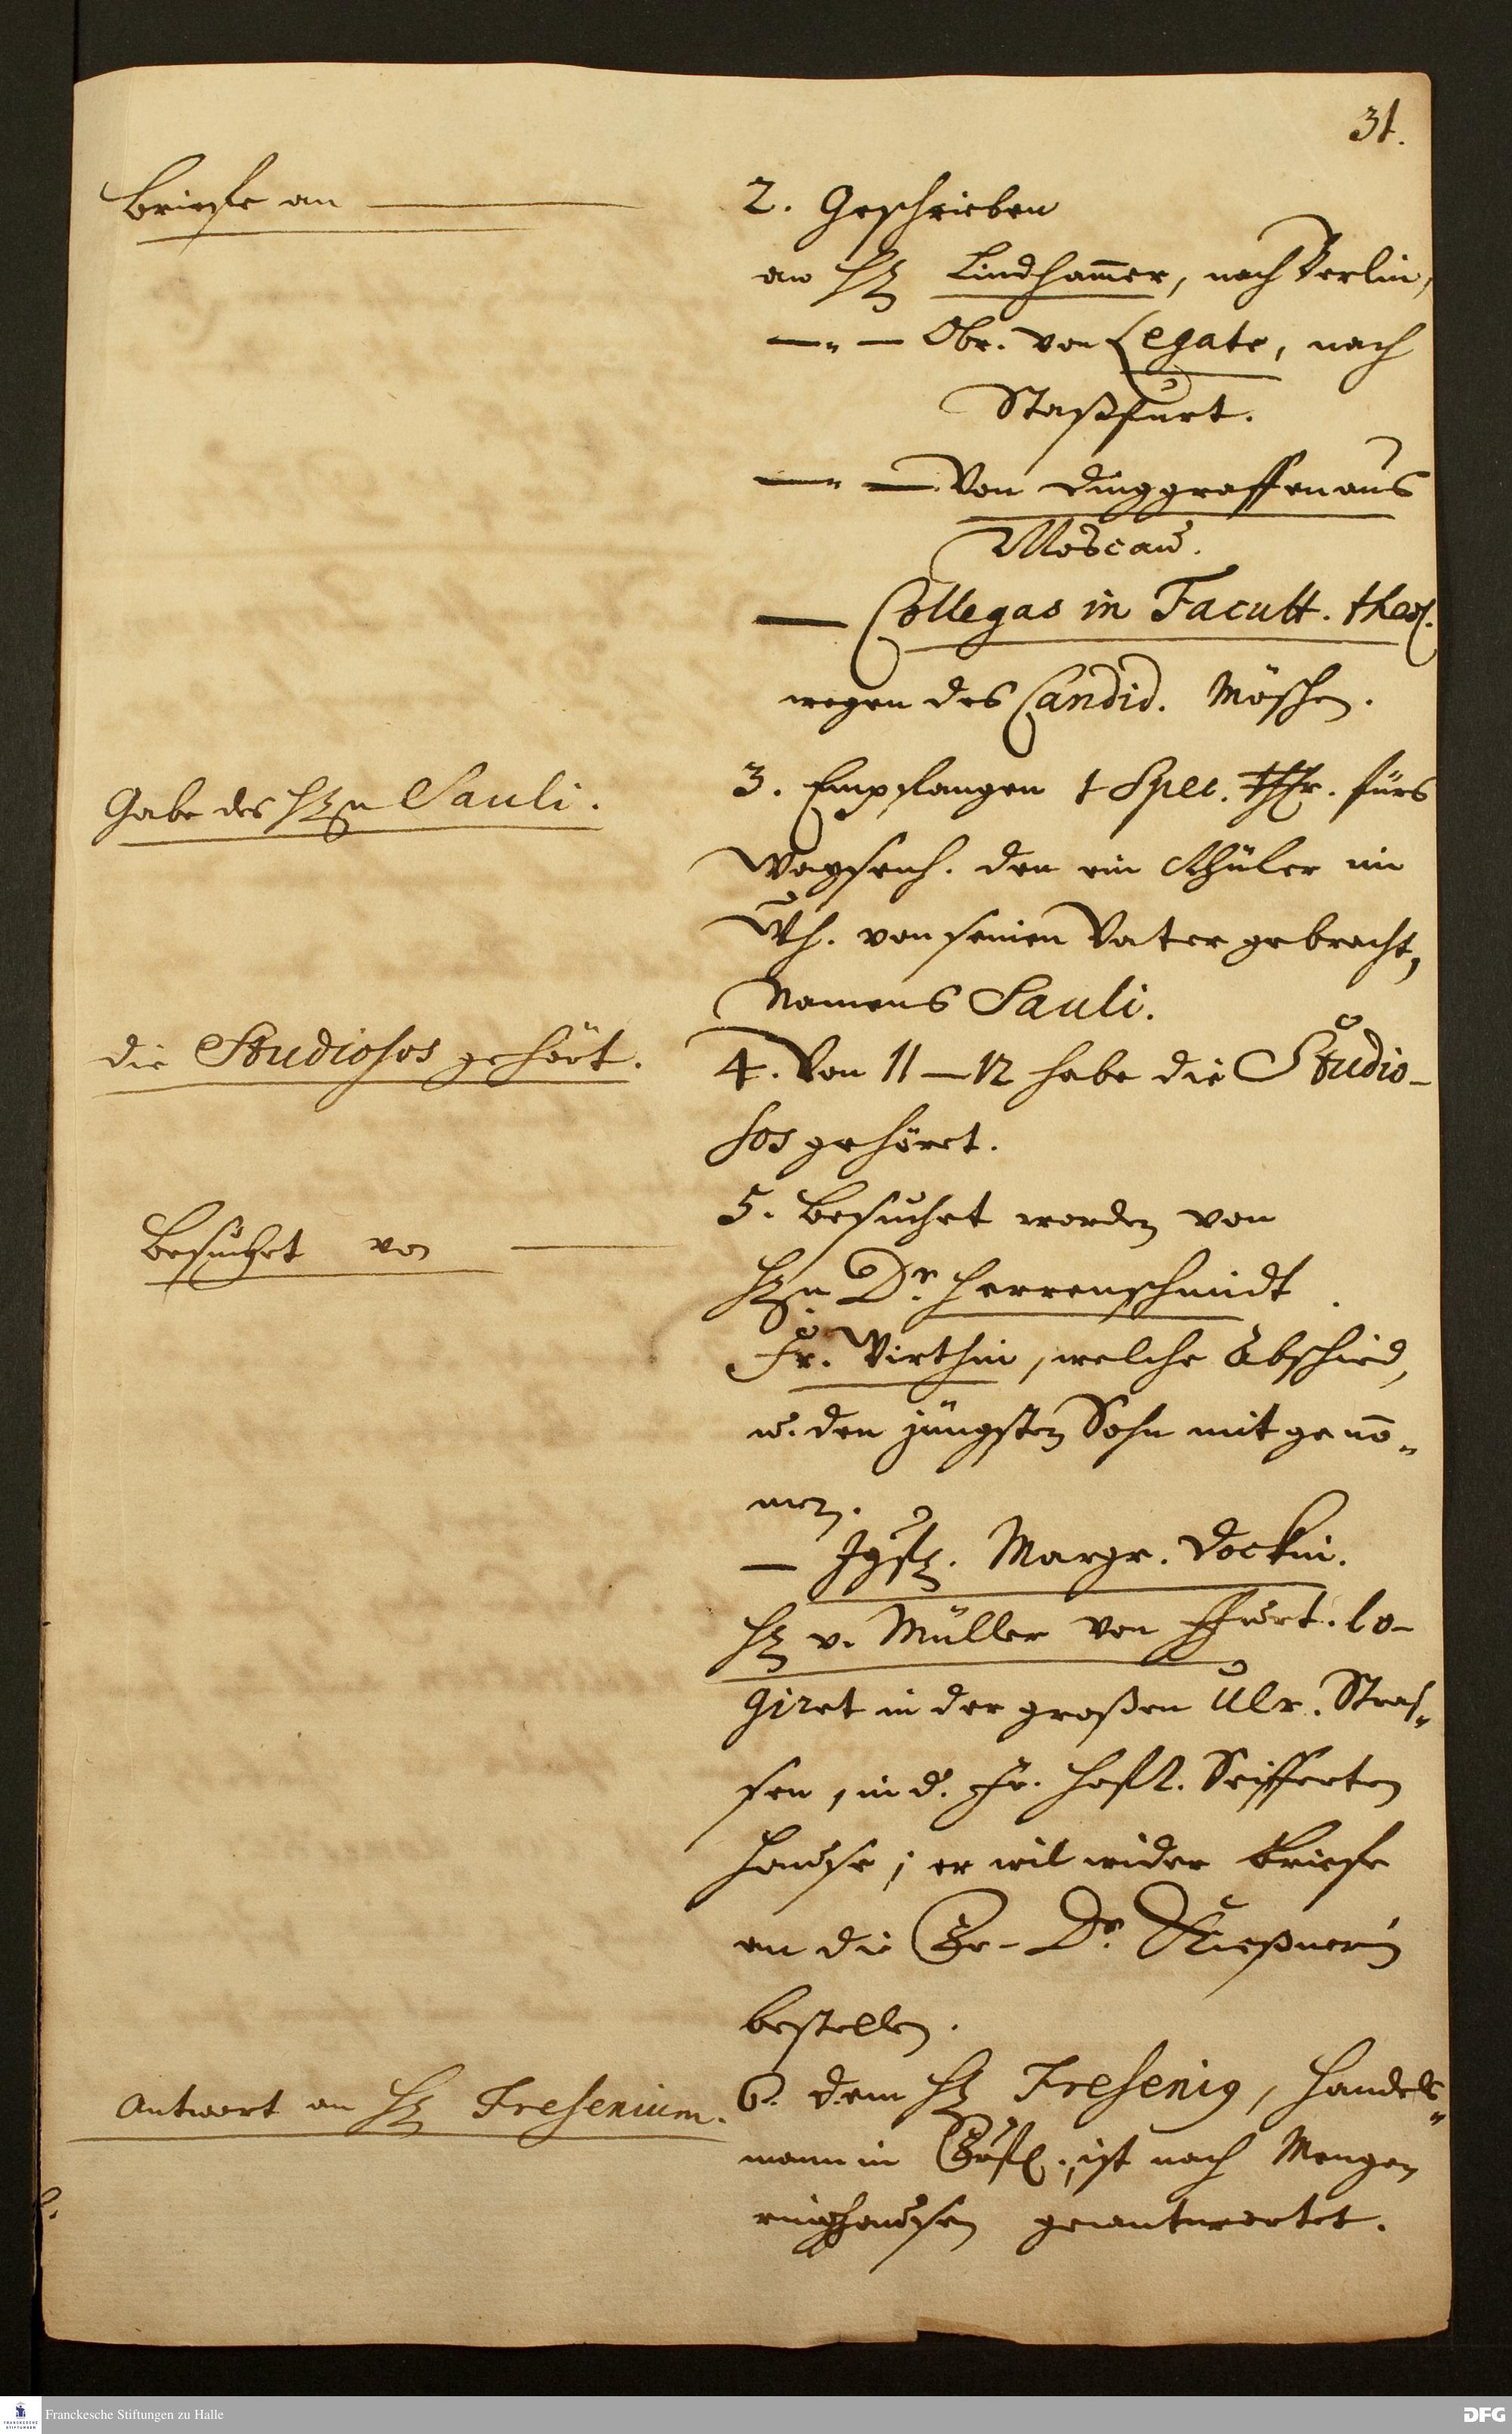 31.
Briefe an
2. Geschrieben
an H. Lindham̅er, nach Berlin,
—„— Obr. von Legate, nach
Staßfurt.
—„— Von Dinggraffen aus
Moscau.
— Collegas in Facult. theol.
wegen des Candid. Möschen.
Gabe des H.n Sauli.
3. Empfangen 1 Spec. Thlr. fürs
Waysenh. den ein Schüler im
Wh. von seinen Vater gebracht,
Namens Sauli.
die Studiosos gehört.
4. Von 11–12 habe die Studio-
sos gehöret.
Besuchet von
5. Besuchet worden von
H.n Dr. Herrenschmidt
Fr. Wirthin, welche Abschied,
u. den jüngsten Sohn mit geno̅-
men.
— Jgfr. Margr. Dockin.
H. v. Müller von lo-
giret in der großen Ulr. Stras-
sen, in d. Fr. Seifferten
Hause; er wil wider Briefe
an die Gr- Dr.
bestellen.
Antwort an H. Fresenium.
6. dem H. Fresenio, Handels-
mann in ist nach Mengen
ringhausen geantwortet.
Franckesche Stiftungen zu Halle
DFG